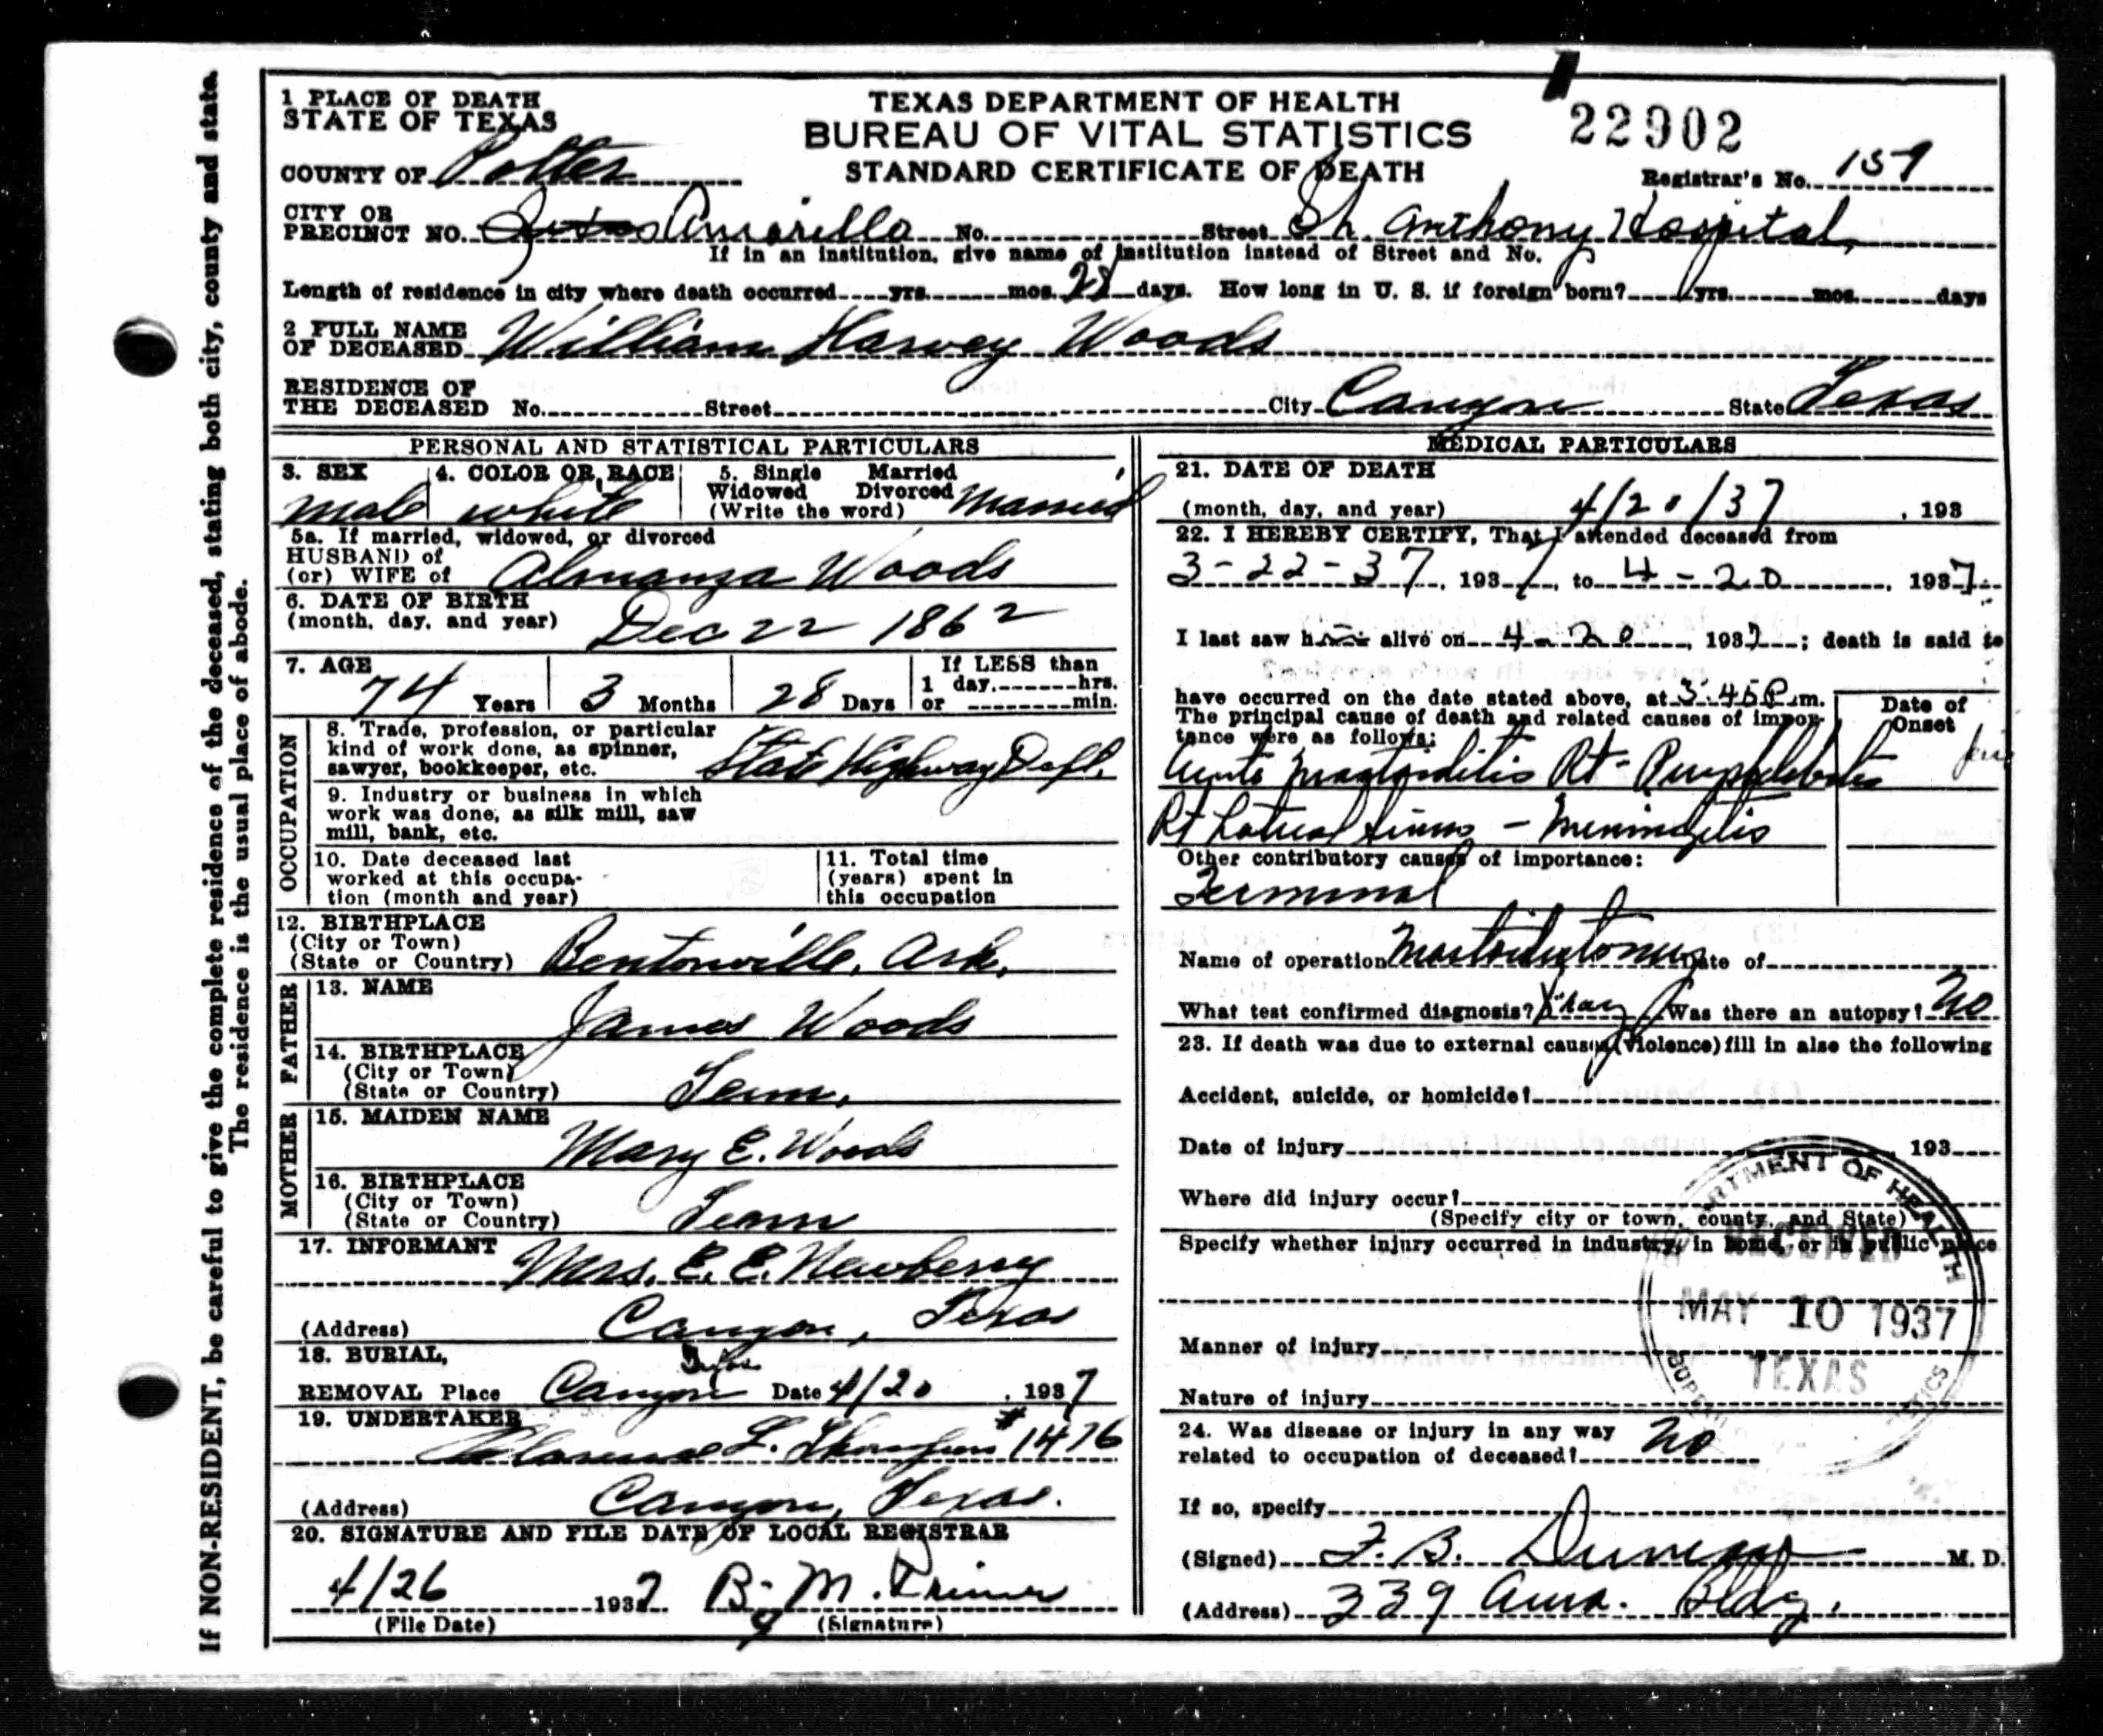 If NON-RESIDENT, be careful to give the complete residence of the deceased, stating both city, county and state.
The residence is the usual place of abode.
1 PLACE OF DEATH
STATE OF TEXAS
TEXAS DEPARTMENT OF HEALTH
BUREAU OF VITAL STATISTICS
STANDARD CERTIFICATE OF DEATH
22902
COUNTY OF Potter
Registrar's No. 159
CITY OR
PRECINCT NO. Amarillo No. Street St. Anthony Hospital,
If in an institution, give name of institution instead of Street and No.
Length of residence in city where death occurred yrs. mos. 28 days. How long in U. S. if foreign born? yrs. mos. days
2 FULL NAME
OF DECEASED William Harvey Woods
RESIDENCE OF
THE DECEASED No. Street City Canyon State Texas
PERSONAL AND STATISTICAL PARTICULARS
3. SEX 4. COLOR OR RACE 5. Single Married
Widowed Divorced
(Write the word)
male white Married
5a. If married, widowed, or divorced
HUSBAND of
(or) WIFE of Almanza Woods
6. DATE OF BIRTH
(month, day, and year) Dec 22 1862
7. AGE
74 Years 3 Months 28 Days
If LESS than
1 day, hrs.
or min.
OCCUPATION
8. Trade, profession, or particular
kind of work done, as spinner,
sawyer, bookkeeper, etc. State Highway Dept.
9. Industry or business in which
work was done, as silk mill, saw
mill, bank, etc.
10. Date deceased last
worked at this occupa-
tion (month and year)
11. Total time
(years) spent in
this occupation
12. BIRTHPLACE
(City or Town)
(State or Country) Bentonville, Ark.
FATHER
13. NAME
James Woods
14. BIRTHPLACE
(City or Town)
(State or Country) Tenn.
MOTHER
15. MAIDEN NAME
Mary E. Woods
16. BIRTHPLACE
(City or Town)
(State or Country) Tenn
17. INFORMANT
Mrs. E. E. Newberry
(Address) Canyon, Texas
18. BURIAL,
Texas
REMOVAL Place Canyon Date 4/20, 1937
19. UNDERTAKER
Clarence L. Thompson #1476
(Address) Canyon, Texas.
20. SIGNATURE AND FILE DATE OF LOCAL REGISTRAR
4/26 1937 B. M.
(File Date) (Signature)
MEDICAL PARTICULARS
21. DATE OF DEATH
(month, day, and year) 4/20/37, 193
22. I HEREBY CERTIFY, That I attended deceased from
3-22-37, 1937, to 4-20, 1937
I last saw him alive on 4-20, 1937; death is said to
have occurred on the date stated above, at 3:45 P.m.
The principal cause of death and related causes of impor-
tance were as follows:
Date of
Onset
Acute Mastoiditis Rt -
Rt Lateral sinus - Meningitis
Other contributory causes of importance:
Terminal
Name of operation Mastoidectomy Date of
What test confirmed diagnosis? Xray Was there an autopsy? No
23. If death was due to external causes (violence) fill in also the following
Accident, suicide, or homicide?
Date of injury 193
Where did injury occur?
(Specify city or town, county, and State)
Specify whether injury occurred in industry, in home, or in public place
Manner of injury
Nature of injury
DEPARTMENT OF HEALTH
RECEIVED
MAY 10 1937
TEXAS
24. Was disease or injury in any way
related to occupation of deceased? No
If so, specify
(Signed) F. B. M. D.
(Address) 339 Ama. Bldg.